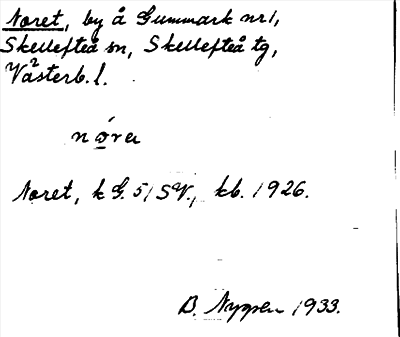 Noret, by å Gummark nr1,
Skellefteå sn, Skellefteå tg,
Västerb. l.
nǫra
Noret, k G. 51 SV., kb. 1926.
B. Nygren 1933.